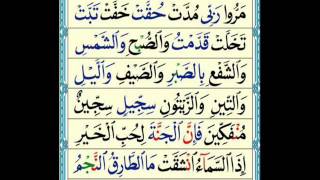 مَرُّوا رَبِّيْ مُدَّتْ حُقَّتْ خَفَّتْ تَبَّتْ
تَخَلَّتْ قَدَّمْتُ وَالصُّبْحِ وَالشَّمْسِ
وَالشَّفْعِ بِالصَّبْرِ وَالصَّيْفِ وَالَّيْلِ
وَالتِّيْنِ وَالزَّيْتُوْنِ سِجِّيْلٍ سِجِّيْنٌ
مُنْفَكِّيْنَ فَاِنَّ الْجَنَّةَ لِحُبِّ الْخَيْرِ
اِذَا السَّمَآءُ انْشَقَّتْ مَا الطَّارِقُ النَّجْمُ